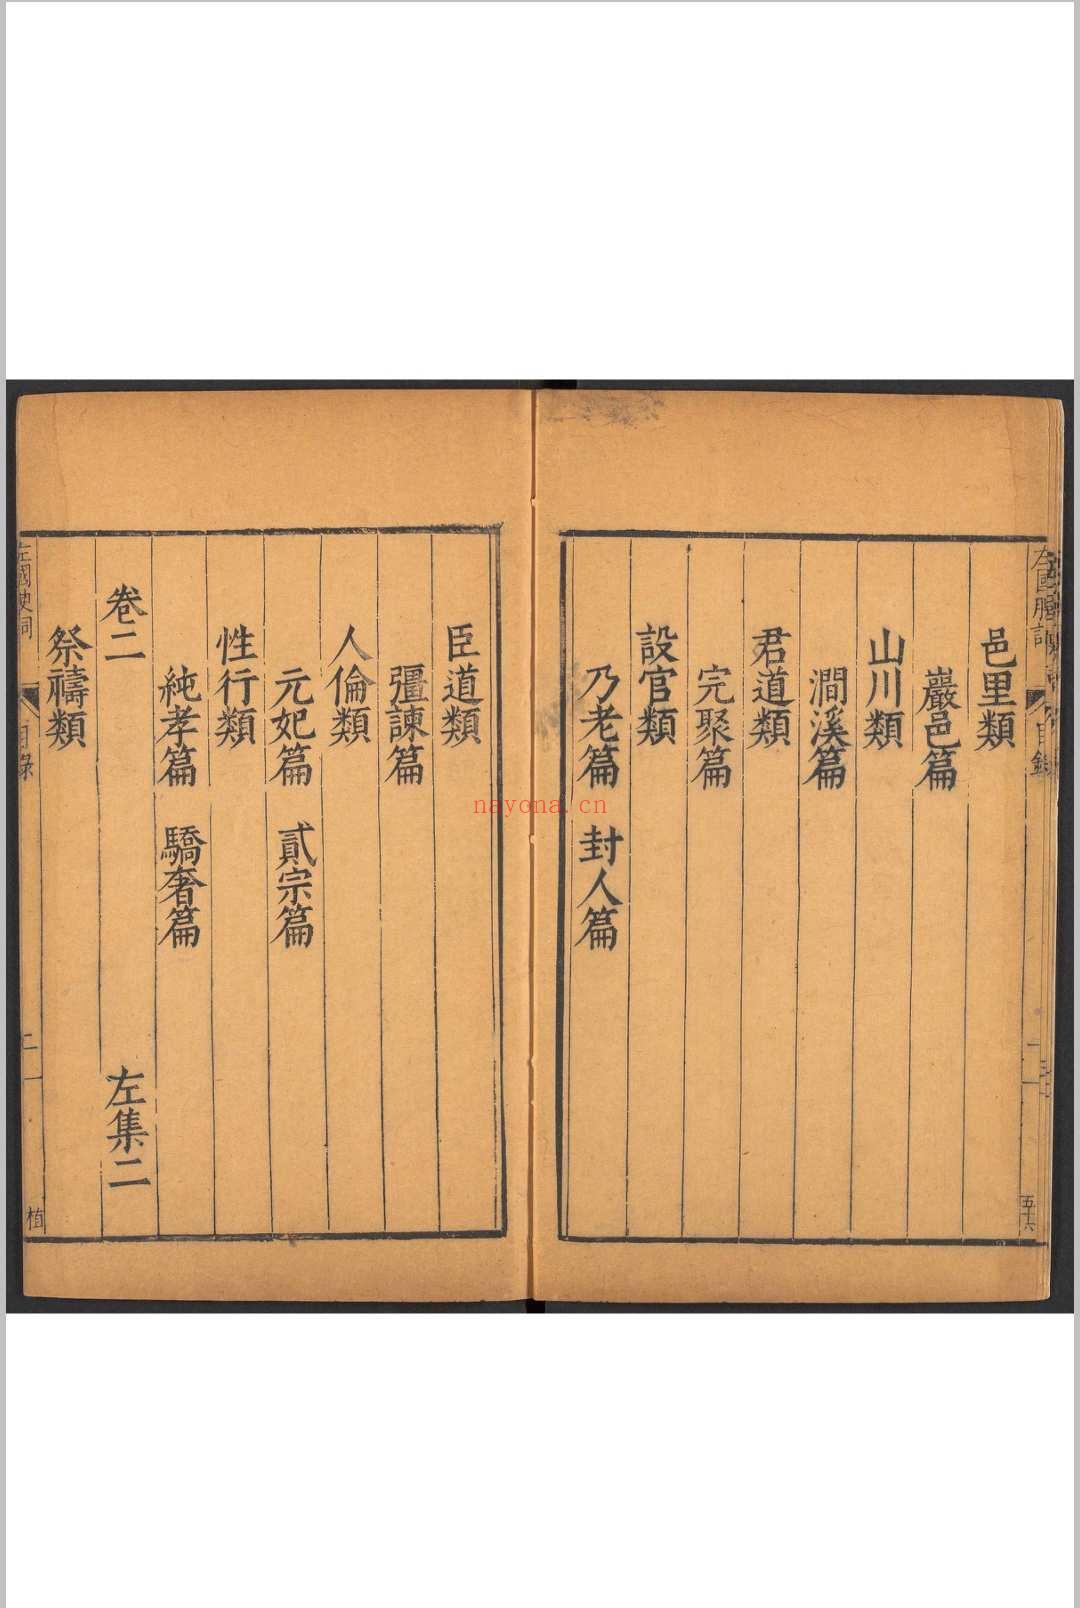 邑里類
巖邑篇
山川類
澗溪篇
君道類
完聚篇
設官類
乃老篇 封人篇
臣道類
彊諫篇
人倫類
元妃篇 貳宗篇
性行類
純孝篇 驕奢篇
卷二 左集二
祭禱類
目錄
五十六
植
nayona.cn